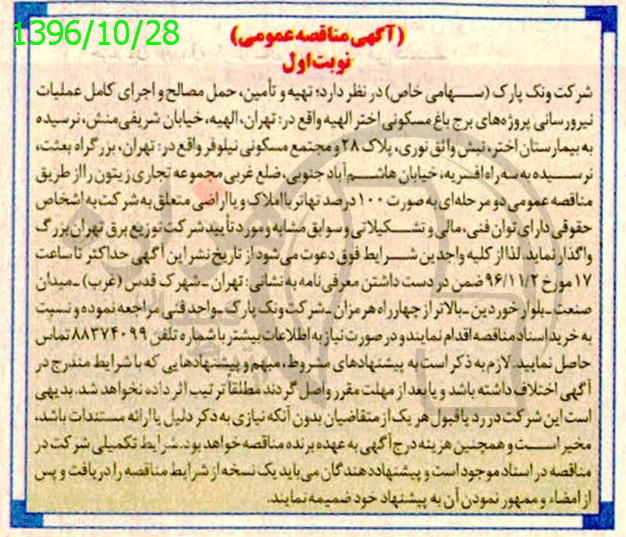 1396/10/28
(آگهی مناقصه عمومی)
نوبت اول
شرکت ونک پارک (سهامی خاص) در نظر دارد؛ تهیه و تأمین، حمل مصالح و اجرای کامل عملیات
نیرورسانی پروژه‌های برج باغ مسکونی اختر الهیه واقع در: تهران، الهیه، خیابان شریفی‌منش، نرسیده
به بیمارستان اختر، نبش واثق نوری، پلاک ۲۸ و مجتمع مسکونی نیلوفر واقع در: تهران، بزرگراه بعثت،
نرسیده به سه راه افسریه، خیابان هاشم‌آباد جنوبی، ضلع غربی مجموعه تجاری زیتون را از طریق
مناقصه عمومی دو مرحله‌ای به صورت ۱۰۰ درصد تهاتر با املاک و یا اراضی متعلق به شرکت به اشخاص
حقوقی دارای توان فنی، مالی و تشکیلاتی و سوابق مشابه و مورد تأیید شرکت توزیع برق تهران بزرگ
واگذار نماید. لذا از کلیه واجدین شرایط فوق دعوت می‌شود از تاریخ نشر این آگهی حداکثر تا ساعت
۱۷ مورخ ۹۶/۱۱/۲ ضمن در دست داشتن معرفی‌نامه به نشانی: تهران ـ شهرک قدس (غرب) ـ میدان
صنعت ـ بلوار خوردین ـ بالاتر از چهارراه هرمزان ـ شرکت ونک پارک ـ واحد فنی مراجعه نموده و نسبت
به خرید اسناد مناقصه اقدام نمایند و در صورت نیاز به اطلاعات بیشتر با شماره تلفن ۸۸۳۷۴۰۹۹ تماس
حاصل نمایید. لازم به ذکر است به پیشنهادهای مشروط، مبهم و پیشنهادهایی که با شرایط مندرج در
آگهی اختلاف داشته باشد و یا بعد از مهلت مقرر واصل گردند مطلقاً ترتیب اثر داده نخواهد شد. بدیهی
است این شرکت در رد یا قبول هر یک از متقاضیان بدون آنکه نیازی به ذکر دلیل یا ارائه مستندات باشد،
مخیر است و همچنین هزینه درج آگهی به عهده برنده مناقصه خواهد بود. شرایط تکمیلی شرکت در
مناقصه در اسناد موجود است و پیشنهاددهندگان می‌باید یک نسخه از شرایط مناقصه را دریافت و پس
از امضاء و ممهور نمودن آن به پیشنهاد خود ضمیمه نمایند.